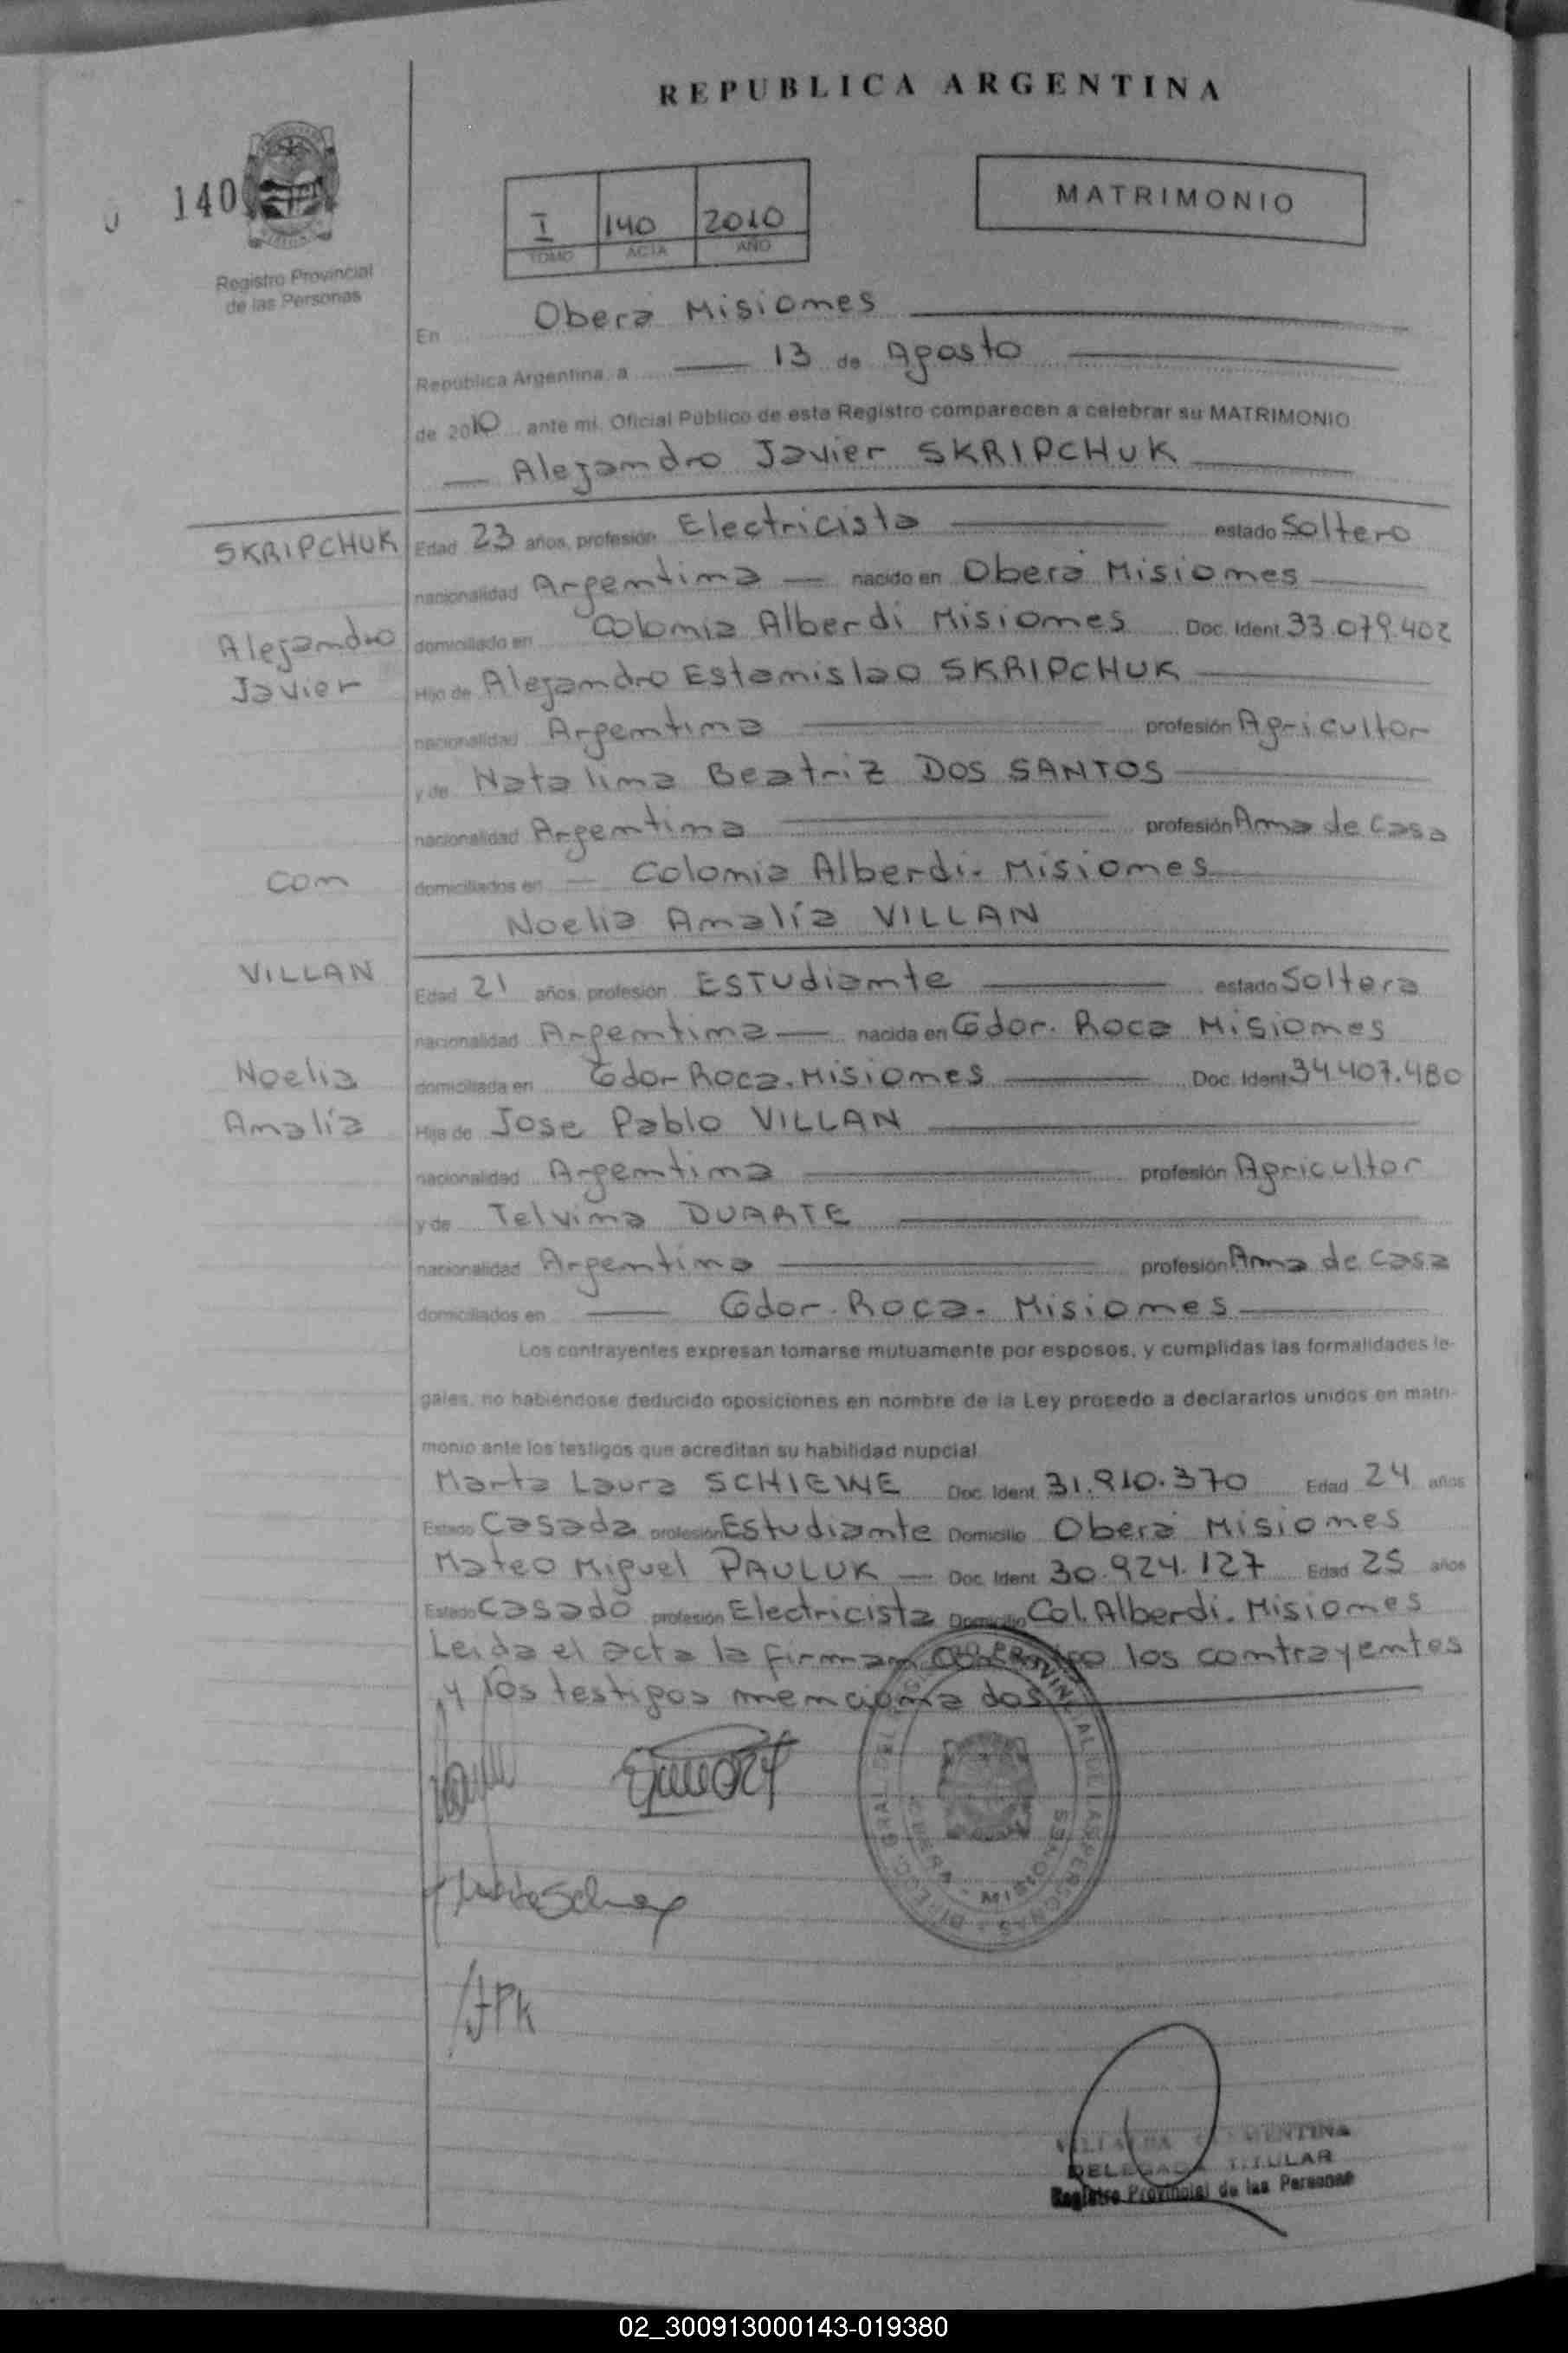 REPUBLICA ARGENTINA
140
Registro Provincial
de las Personas
I 140 2010
TOMO ACTA AÑO
MATRIMONIO
En Oberá Misiones
República Argentina, a 13 de Agosto
de 2010 ante mi, Oficial Público de este Registro comparecen a celebrar su MATRIMONIO
Alejandro Javier SKRIPCHUK
SKRIPCHUK
Edad 23 años, profesión Electricista estado Soltero
nacionalidad Argentina nacido en Oberá Misiones
Alejandro
domiciliado en Colonia Alberdi Misiones Doc. Ident. 33.079.402
Javier
Hijo de Alejandro Estanislao SKRIPCHUK
nacionalidad Argentina profesión Agricultor
y de Natalina Beatriz DOS SANTOS
nacionalidad Argentina profesión Ama de Casa
con
domiciliados en Colonia Alberdi. Misiones
Noelia Amalía VILLAN
VILLAN
Edad 21 años, profesión ESTudiante estado Soltera
nacionalidad Argentina nacida en Gdor. Roca Misiones
Noelia
domiciliada en Gdor Roca. Misiones Doc. Ident. 34.407.480
Amalía
Hija de Jose Pablo VILLAN
nacionalidad Argentina profesión Agricultor
y de Telvina DUARTE
nacionalidad Argentina profesión Ama de Casa
domiciliados en Gdor. Roca. Misiones
Los contrayentes expresan tomarse mutuamente por esposos, y cumplidas las formalidades le-
gales, no habiéndose deducido oposiciones en nombre de la Ley procedo a declararlos unidos en matri-
monio ante los testigos que acreditan su habilidad nupcial
Marta Laura SCHIEWE Doc. Ident. 31.910.370 Edad 24 años
Estado Casada profesión Estudiante Domicilio Oberá Misiones
Mateo Miguel PAULUK Doc. Ident. 30.924.127 Edad 25 años
Estado Casado profesión Electricista Domicilio Col. Alberdi. Misiones
Leida el acta la firman conmigo los contrayentes
y los testigos mencionados
MISIONES
DELEGADA TITULAR
Registro Provincial de las Personas
02_300913000143-019380